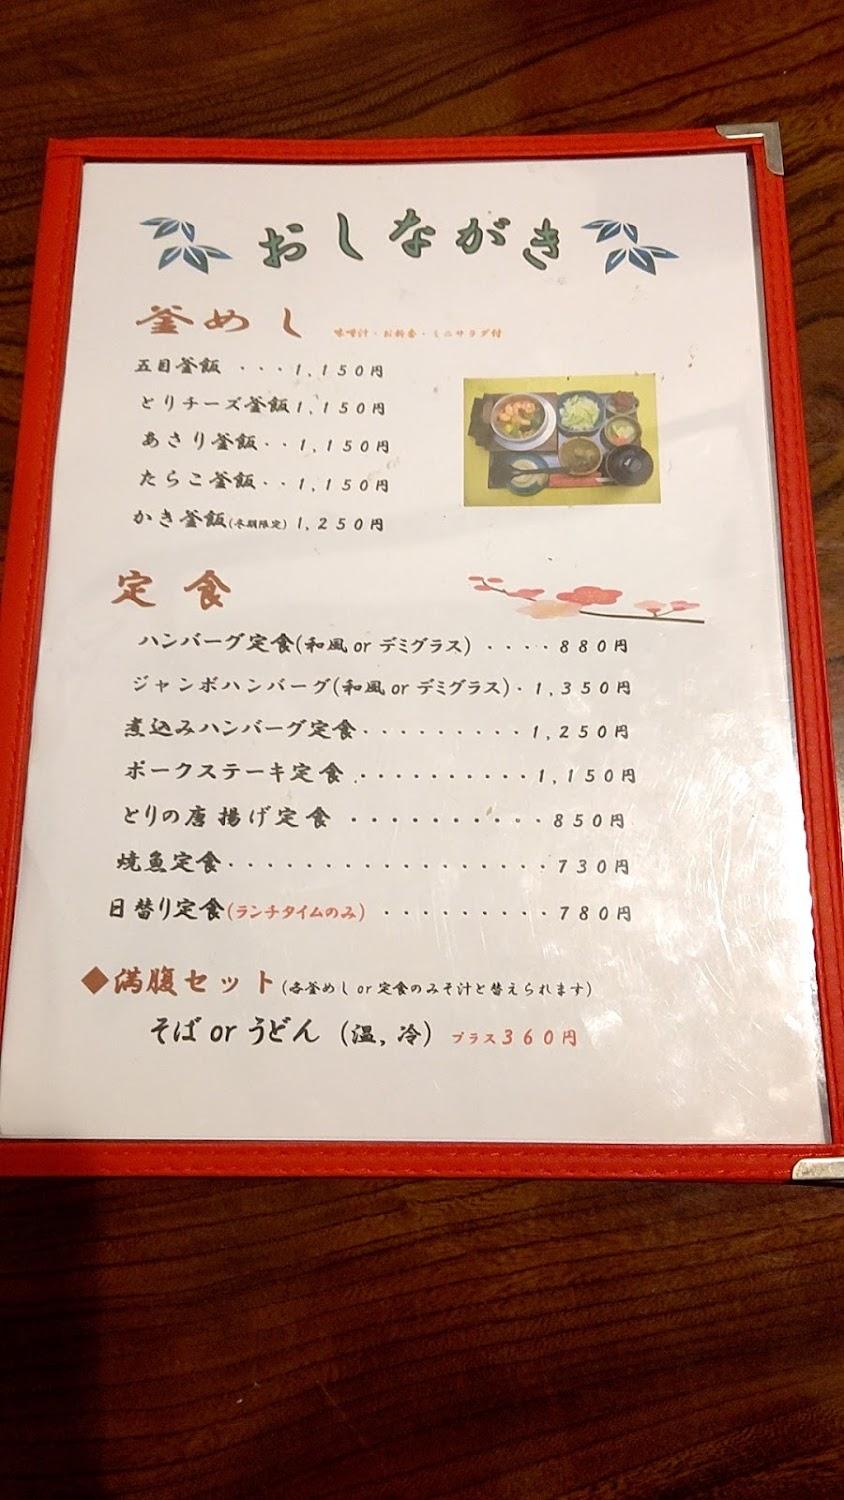 おしながき
釜めし 味噌汁・お新香・ミニサラダ付
五目釜飯 ・・・1,150円
とりチーズ釜飯1,150円
あさり釜飯・・1,150円
たらこ釜飯・・1,150円
かき釜飯(冬期限定) 1,250円
定食
ハンバーグ定食(和風 or デミグラス) ・・・・880円
ジャンボハンバーグ(和風 or デミグラス)・1,350円
煮込みハンバーグ定食・・・・・・・・・1,250円
ポークステーキ定食・・・・・・・・・・1,150円
とりの唐揚げ定食 ・・・・・・・・・・850円
焼魚定食・・・・・・・・・・・・・・・・・・730円
日替り定食(ランチタイムのみ) ・・・・・・・・・780円
◆満腹セット(各釜めし or 定食のみそ汁と替えられます)
そば or うどん (温, 冷) プラス360円